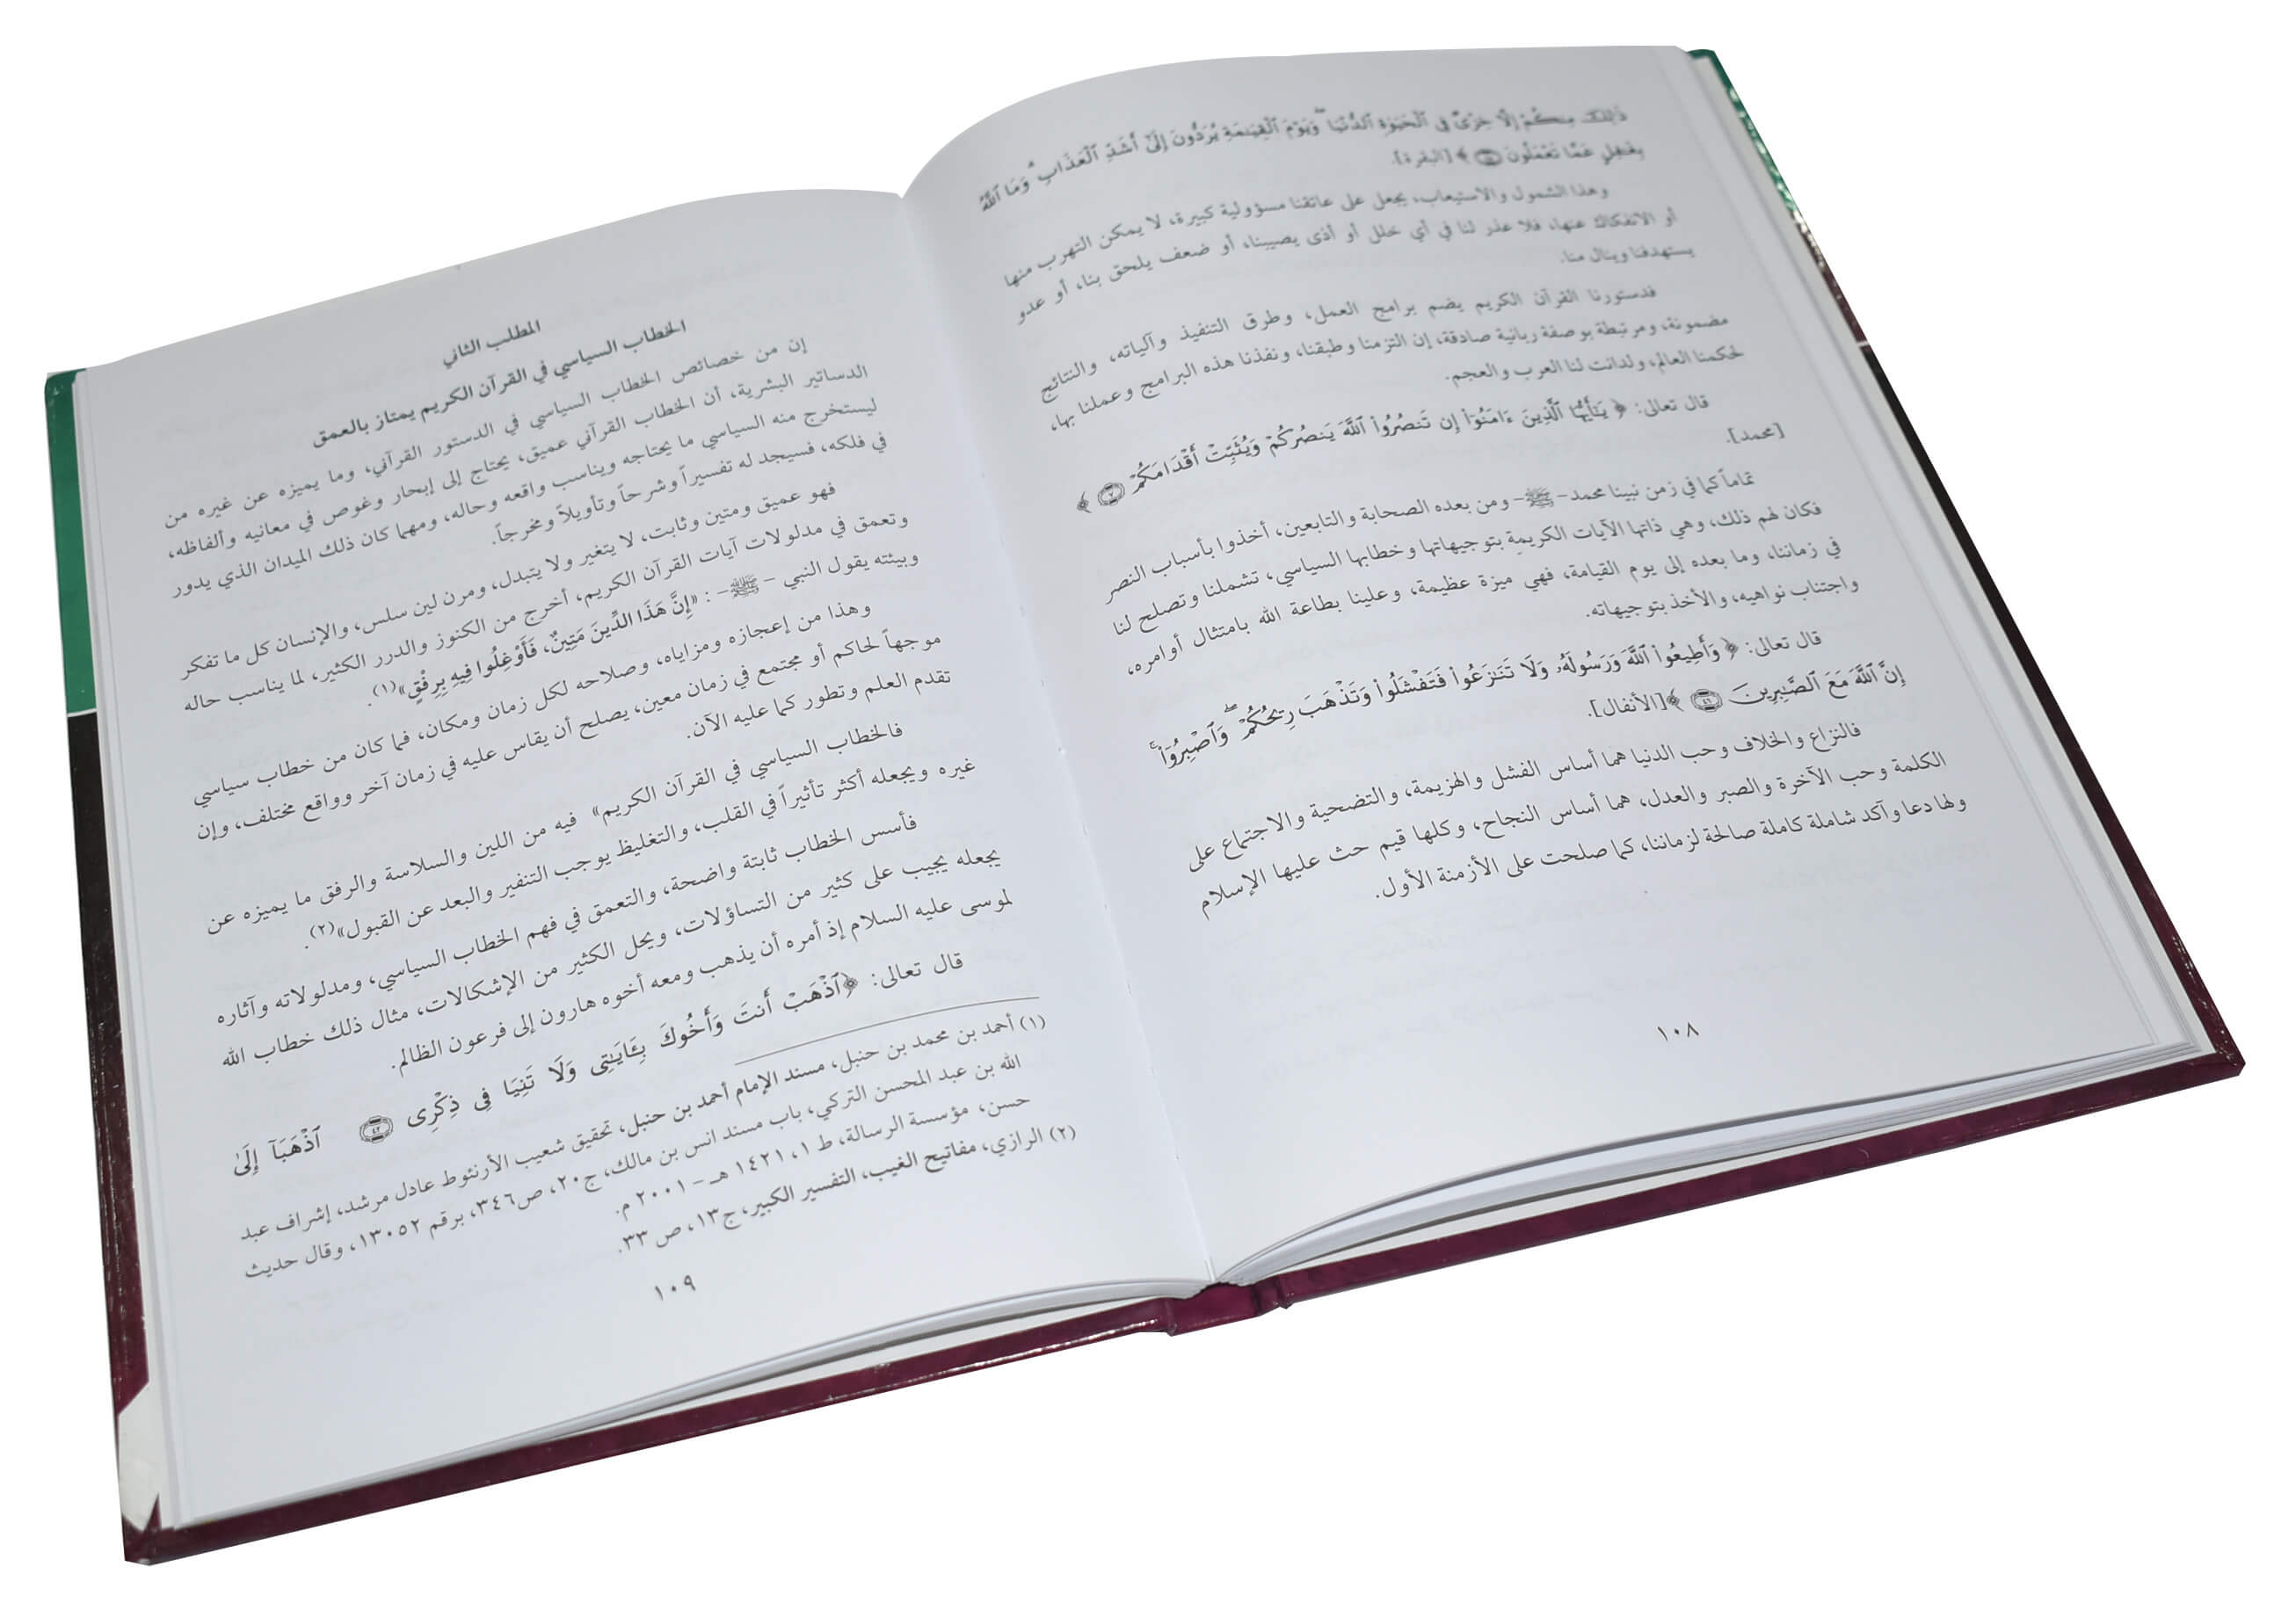 ذَٰلِكَ مِنكُمْ إِلَّا خِزْىٌ فِى ٱلْحَيَوٰةِ ٱلدُّنْيَا ۖ وَيَوْمَ ٱلْقِيَـٰمَةِ يُرَدُّونَ إِلَىٰٓ أَشَدِّ ٱلْعَذَابِ ۗ وَمَا ٱللَّهُ
بِغَـٰفِلٍ عَمَّا تَعْمَلُونَ ﴾ [البقرة].
وهذا الشمول والاستيعاب، يجعل على عاتقنا مسؤولية كبيرة، لا يمكن التهرب منها
أو الانفكاك عنها، فلا عذر لنا في أي خلل أو أذى يصيبنا، أو ضعف يلحق بنا، أو عدو
يستهدفنا وينال منا.
فدستورنا القرآن الكريم يضم برامج العمل، وطرق التنفيذ وآلياته، والنتائج
مضمونة، ومرتبطة بوصفة ربانية صادقة، إن التزمنا وطبقنا، ونفذنا هذه البرامج وعملنا بها،
لحكمنا العالم، ولدانت لنا العرب والعجم.
قال تعالى: ﴿ يَـٰٓأَيُّهَا ٱلَّذِينَ ءَامَنُوٓا۟ إِن تَنصُرُوا۟ ٱللَّهَ يَنصُرْكُمْ وَيُثَبِّتْ أَقْدَامَكُمْ ٧ ﴾
[محمد].
تماماً كما في زمن نبينا محمد - ﷺ - ومن بعده الصحابة والتابعين، أخذوا بأسباب النصر
فكان لهم ذلك، وهي ذاتها الآيات الكريمة بتوجيهاتها وخطابها السياسي، تشملنا وتصلح لنا
في زماننا، وما بعده إلى يوم القيامة، فهي ميزة عظيمة، وعلينا بطاعة الله بامتثال أوامره،
واجتناب نواهيه، والأخذ بتوجيهاته.
قال تعالى: ﴿ وَأَطِيعُوا۟ ٱللَّهَ وَرَسُولَهُۥ وَلَا تَنَـٰزَعُوا۟ فَتَفْشَلُوا۟ وَتَذْهَبَ رِيحُكُمْ ۖ وَٱصْبِرُوٓا۟ ۚ
إِنَّ ٱللَّهَ مَعَ ٱلصَّـٰبِرِينَ ٤٦ ﴾ [الأنفال].
فالنزاع والخلاف وحب الدنيا هما أساس الفشل والهزيمة، والتضحية والاجتماع على
الكلمة وحب الآخرة والصبر والعدل، هما أساس النجاح، وكلها قيم حث عليها الإسلام
ولها دعا وآكد شاملة كاملة صالحة لزماننا، كما صلحت على الأزمنة الأول.
١٠٨
المطلب الثاني
الخطاب السياسي في القرآن الكريم يمتاز بالعمق
إن من خصائص الخطاب السياسي في الدستور القرآني، وما يميزه عن غيره من
الدساتير البشرية، أن الخطاب القرآني عميق، يحتاج إلى إبحار وغوص في معانيه وألفاظه،
ليستخرج منه السياسي ما يحتاجه ويناسب واقعه وحاله، ومهما كان ذلك الميدان الذي يدور
في فلكه، فسيجد له تفسيراً وشرحاً وتأويلاً ومخرجاً.
فهو عميق ومتين وثابت، لا يتغير ولا يتبدل، ومرن لين سلس، والإنسان كل ما تفكر
وتعمق في مدلولات آيات القرآن الكريم، أخرج من الكنوز والدرر الكثير، لما يناسب حاله
وبيئته يقول النبي - ﷺ - : «إِنَّ هَذَا الدِّينَ مَتِينٌ، فَأَوْغِلُوا فِيهِ بِرِفْقٍ»(١).
وهذا من إعجازه ومزاياه، وصلاحه لكل زمان ومكان، فما كان من خطاب سياسي
موجهاً لحاكم أو مجتمع في زمان معين، يصلح أن يقاس عليه في زمان آخر وواقع مختلف، وإن
تقدم العلم وتطور كما عليه الآن.
فالخطاب السياسي في القرآن الكريم» فيه من اللين والسلاسة والرفق ما يميزه عن
غيره ويجعله أكثر تأثيراً في القلب، والتغليظ يوجب التنفير والبعد عن القبول»(٢).
فأسس الخطاب ثابتة واضحة، والتعمق في فهم الخطاب السياسي، ومدلولاته وآثاره
يجعله يجيب على كثير من التساؤلات، ويحل الكثير من الإشكالات، مثال ذلك خطاب الله
لموسى عليه السلام إذ أمره أن يذهب ومعه أخوه هارون إلى فرعون الظالم.
قال تعالى: ﴿ٱذْهَبْ أَنتَ وَأَخُوكَ بِـَٔايَـٰتِى وَلَا تَنِيَا فِى ذِكْرِى ٤٢ ٱذْهَبَآ إِلَىٰ
(١) أحمد بن محمد بن حنبل، مسند الإمام أحمد بن حنبل، تحقيق شعيب الأرنئوط عادل مرشد، إشراف عبد
الله بن عبد المحسن التركي، باب مسند انس بن مالك، ج٢٠، ص٣٤٦، برقم ١٣٠٥٢، وقال حديث
حسن، مؤسسة الرسالة، ط ١، ١٤٢١ هـ - ٢٠٠١ م.
(٢) الرازي، مفاتيح الغيب، التفسير الكبير، ج١٣، ص ٣٣.
١٠٩